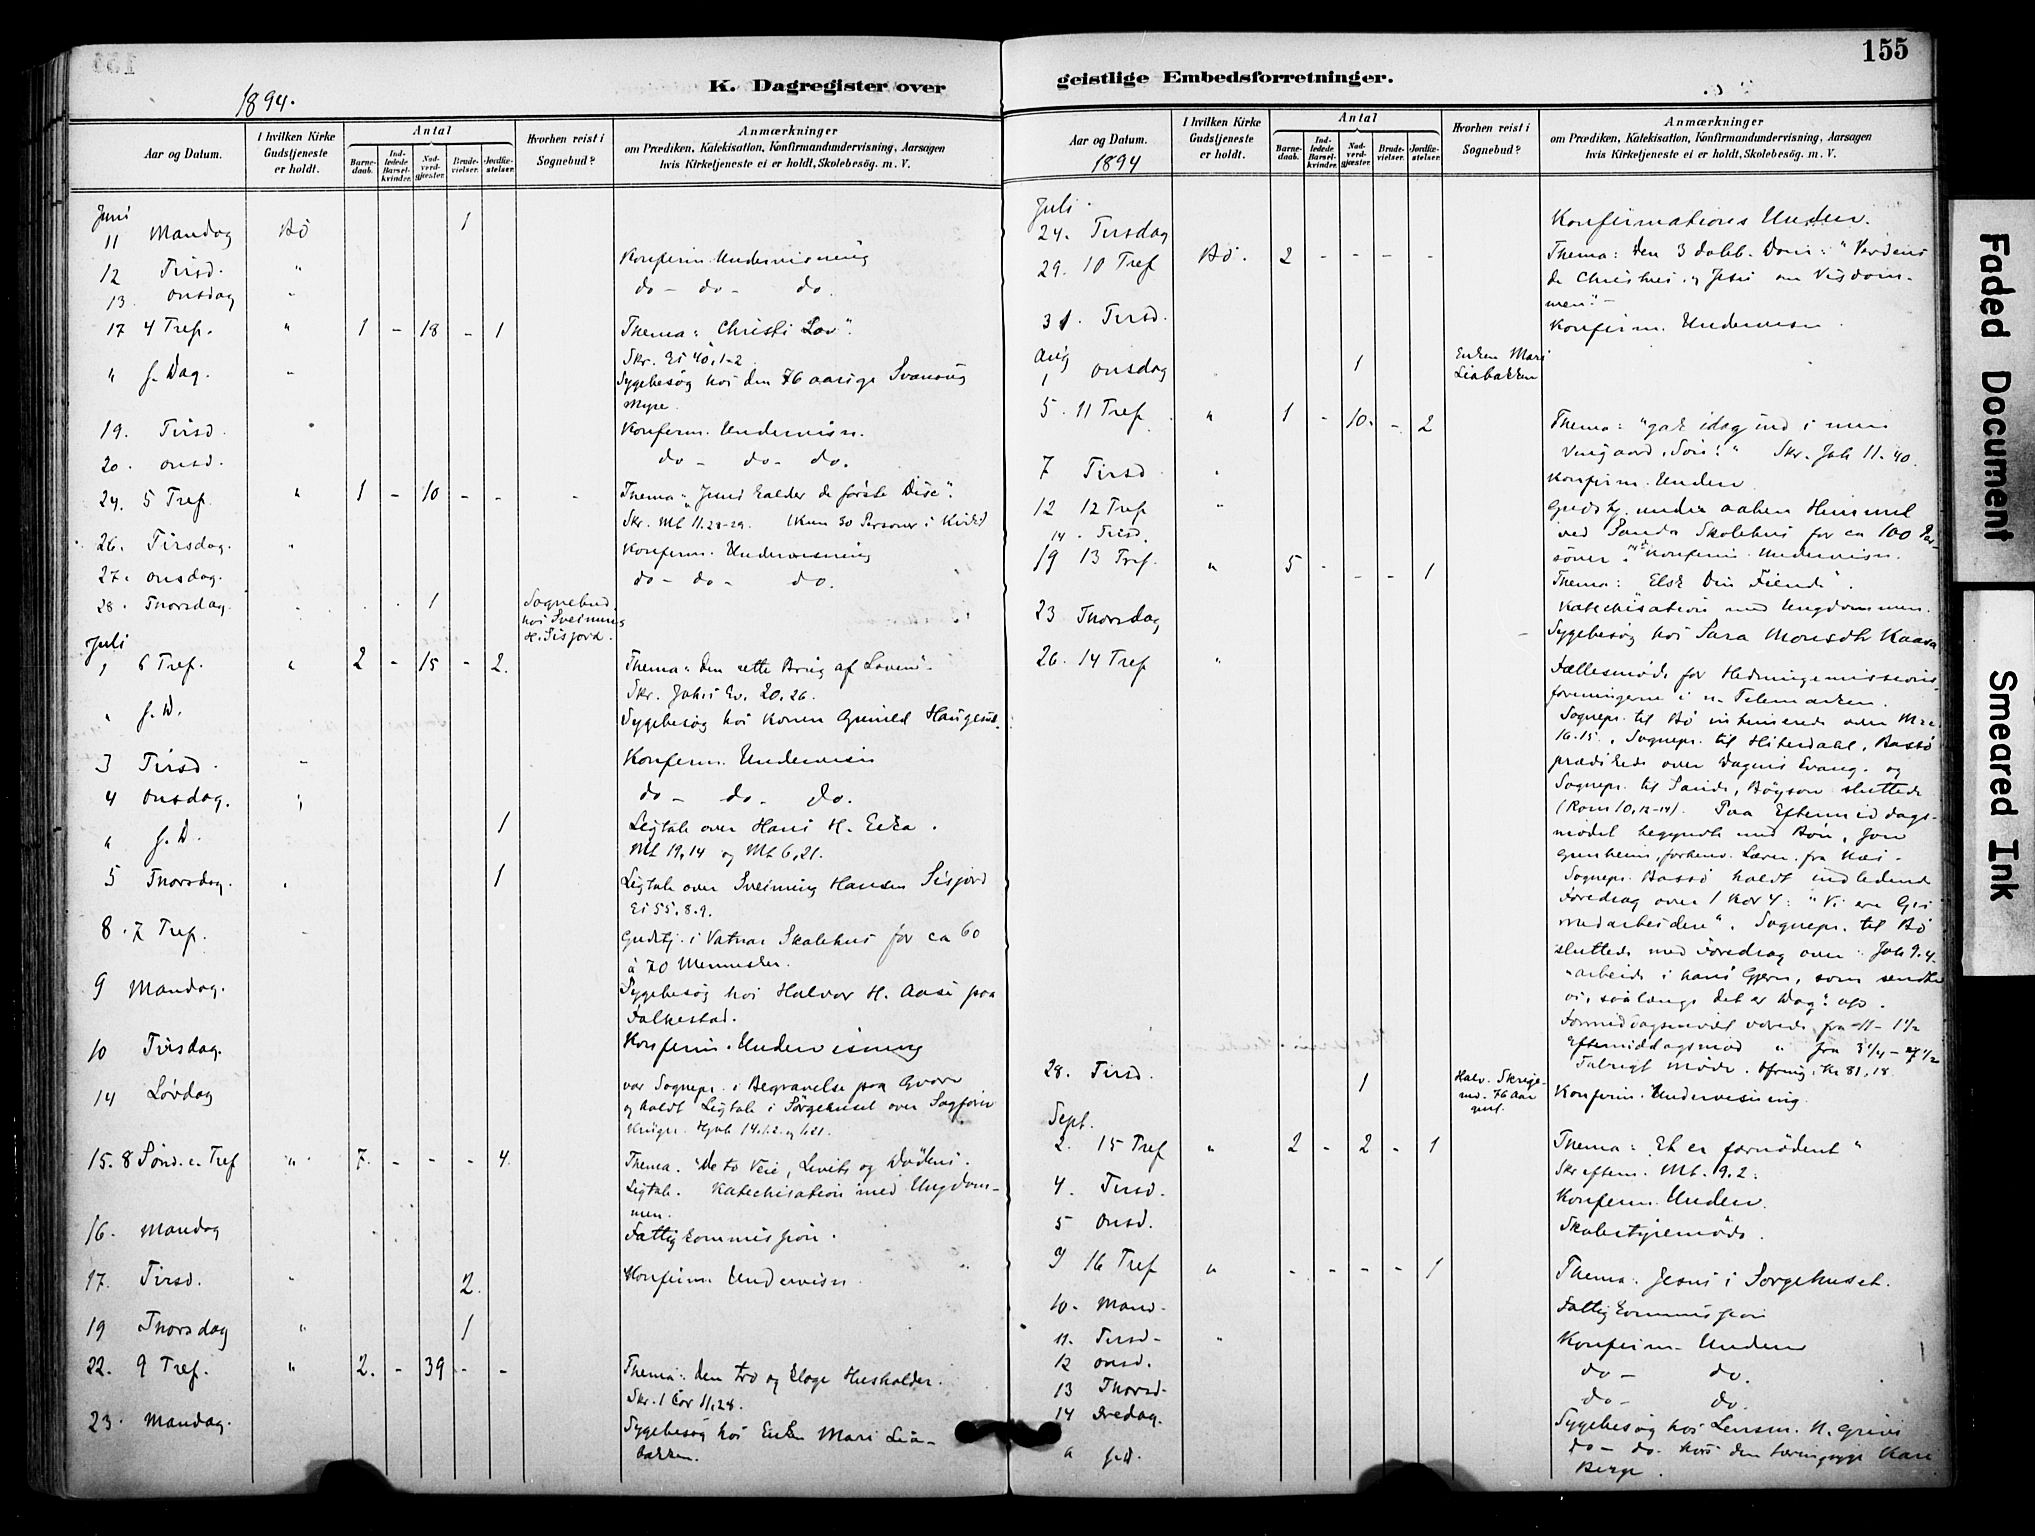 155
K. Dagregister over
geistlige Embedsforretninger.
1894.
Aar og Datum.
I hvilken Kirke Gudstjeneste er holdt.
Antal
Barnedaab.
Indledede Barselkvinder.
Nadverdgjæster.
Brudevielser.
Jordfæstelser.
Hvorhen reist i Sognebud?
Anmærkninger
om Prædiken, Katekisation, Konfirmandundervisning, Aarsagen
hvis Kirketjeneste ei er holdt, Skolebesøg. m. V.
Juni
11 Mandag Bö 1
12 Tirsd. " Konfirm. Undervisning
13. Onsdag " do - do - do.
17 4 Tref. " 1 - 18 - 1 Thema: "Christi Lov".
Skr. Es 40, 1-2
" s. Dag. " Sygebesøg hos den 76 aarige
Myre.
19. Tirsd. Konfirm. Undervisn.
20. Onsd. do - do - do.
24. 5 Tref. " 1 - 10 - - - Thema: "Jesus kalder de første Disc".
Skr. Mt 11. 28-29. (Kun 30 Personer i Kirke)
26. Tirsdag. " Konfirm. Undervisning
27. Onsdag. do - do - do.
28. Thorsdag. 1 Sognebud
hos Sveinung
H. Sisjord.
Juli
1 6 Tref. " 2 - 15 - 2. Thema: Den rette Brug af Loven.
Skr. Johs Ev. 20, 26.
" s. D. Sygebesøg hos Konen Gunild
3 Tirsd. " Konfirm. Undervisn
4 Onsdag. " do - do - do.
" s. D. 1 Ligtale over Hans H. Eika.
Mt 19,14 og Mt 6,21.
5 Thorsdag. " 1 Ligtale over Sveinung Hansen Sisjord
Es 55. 8.9.
8. 7 Tref. Gudstj. i Vatnar Skolehus for ca 60
à 70 Mennesker.
9 Mandag. Sygebesøg hos Halvor H. Aase paa
Folkestad.
10 Tirsdag. Konfirm. Undervisning
14 Lördag var Sognepr. i Begravelse paa
og holdt Ligtale i Sörgehuset over Sagförer
Krüger. Job 14.1.2. og 1.21.
15. 8 Sönd. e. Tref " 7. - - - 4. Thema. "De to Veie, Livets og Dödens.
Ligtale. Katechisation med Ungdom-
men.
16. Mandag Fattigkommission.
17. Tirsd. " 2. Konfirm. Undervisn
19 Thorsdag " 1
22. 9 Tref. " 2. - 39 - - Thema: den tro og kloge Husholder.
Skr. 1 Cor 11,28.
23. Mandag. Sygebesøg hos Enken Mari Lia-
bakken.
Aar og Datum.
1894
I hvilken Kirke Gudstjeneste er holdt.
Antal
Barnedaab.
Indledede Barselkvinder.
Nadverdgjæster.
Brudevielser.
Jordfæstelser.
Hvorhen reist i Sognebud?
Anmærkninger
om Prædiken, Katekisation, Konfirmandundervisning, Aarsagen
hvis Kirketjeneste ei er holdt, Skolebesøg. m. V.
Juli
24. Tirsdag Konfirmations Underv.
29. 10 Tref Bö. 2 - - - - Thema: Den 3 dobb. Dom: "Verdens
men".
31. Tirsd. Konfirm. Undervisn.
Aug
1 Onsdag 1 Enken Mari
Liabakken
5. 11 Tref " 1 - 10. - 2 Thema: "gak idag ind i min
Vingaard, Sön!" Skr. Joh 11. 40.
7 Tirsd " Konfirm. Underv
12 12 Tref " Gudstj. under aaben Himmel
ved Sanda Skolehus for ca 100 Per-
14. Tirsd. soner. 14de Konfirm. Undervisn.
19 13 Tref. " 5 - - - 1 Thema: "Elsk Din Fiende".
Katechisation med Ungdommen.
23 Thorsdag Sygebesøg hos Sara Monsdtr Kaasa
26. 14 Tref " Fællesmøde for Hedningemissions-
foreningerne i n. Telemarken.
Sognepr. til Bö intimerede over Mrc
16.15., Sognepr. til Hiterdahl, Bassö
prædikede over Dagens Evang. og
Sognepr. til Sande, Böyson sluttede
(Rom 10, 12-14). Paa Eftermiddags-
mödet begyndte med Bön,
forhenv. Lærer fra
Sognepr. Bassö holdt indledende
Foredrag over 1 Kor 4: "Vi ere Gds
medarbeidere". Sognepr. til Bö
sluttede med Foredrag over Joh 9.4.
"arbeide i hans Gjern., som sendte
os, saalænge det er Dag".
Formiddagsmödet varede fra 11 - 1½
Eftermiddagsmöd " fra 3¼ - 7½
Talrigt Möde. Ofring. Kr 81,18.
28. Tirsd. 1 Halv. Konfirm. Undervisning.
76 Aar
Sept.
2. 15 Tref " 2 - 2 - 1 Thema: "Et er fornödent"
Skr eftm. Mt. 9.2:
4. Tirsd. Konfirm. Underv.
5 Onsd. Skolestyremöde.
9 16 Tref " - - - - 1 Thema: Jesus i Sorgehuset.
10. Mand. Fattigkommission
11. Tirsd. " Konfirm. Underv
12 Onsd. do - do.
13 Thorsd. do - do.
14 Fredag. Sygebesøg hos Lensm. N. Grivi
" s. D. do - do. hos den Kari
Berge.
Faded Document
Smeared Ink